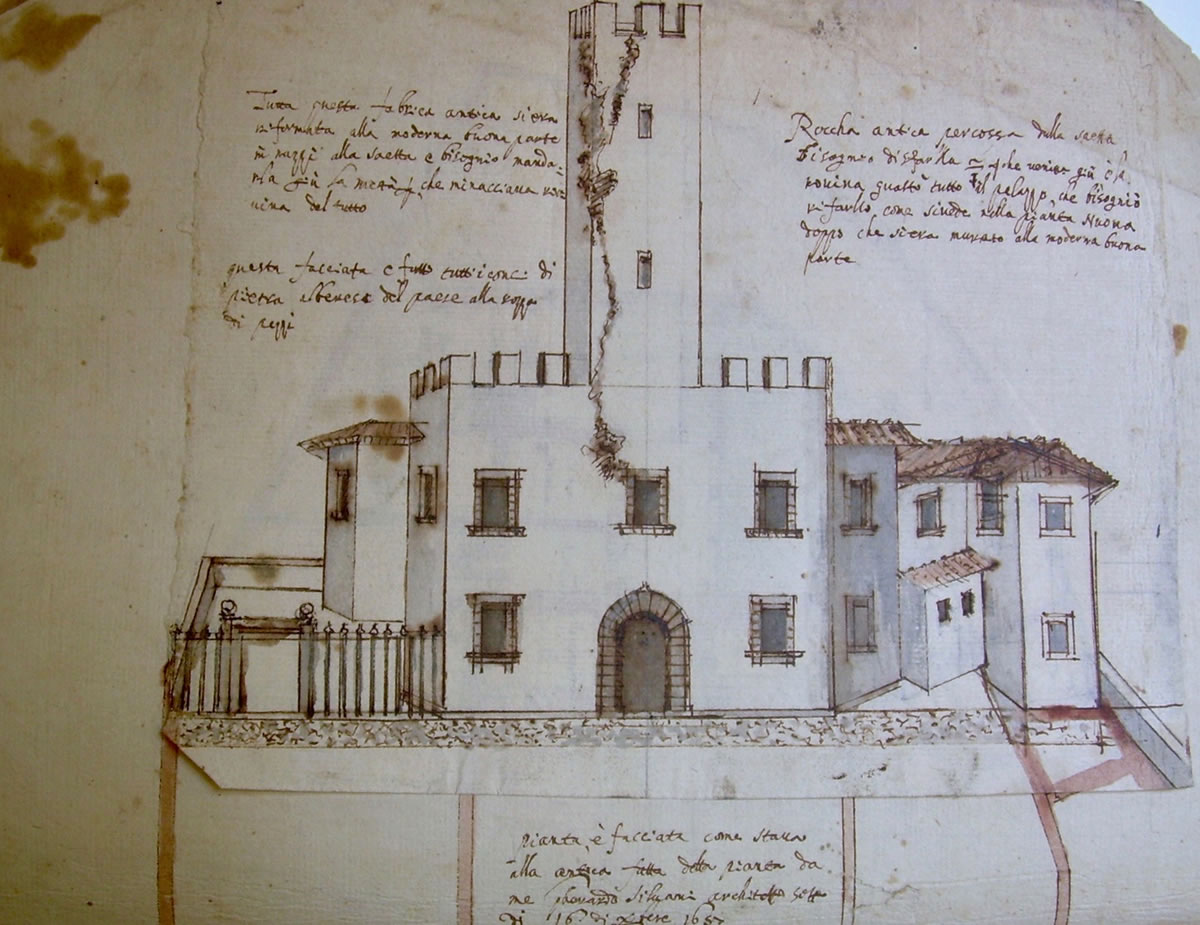 Tutta questa fabrica antica si era
riformata alla moderna buona parte
in pezzi alla saetta e bisognio manda-
rla giù la metà che minacciava rov-
vina del tutto
questa facciata è tutti i conci di
pietra alberese del paese alla
di pezzi
Roccha antica percossa dalla saetta
bisogniò disfarla che venisse giù è la
rovina guastò tutto il palazzo, che bisogniò
rifarllo come si vede nella pianta Nuova
doppo che si era murato alla moderna buona
parte
pianta, è facciata come stava
alla antica fatta della pianta da
me Gherardo Silvani architetto
di 16 di 1657